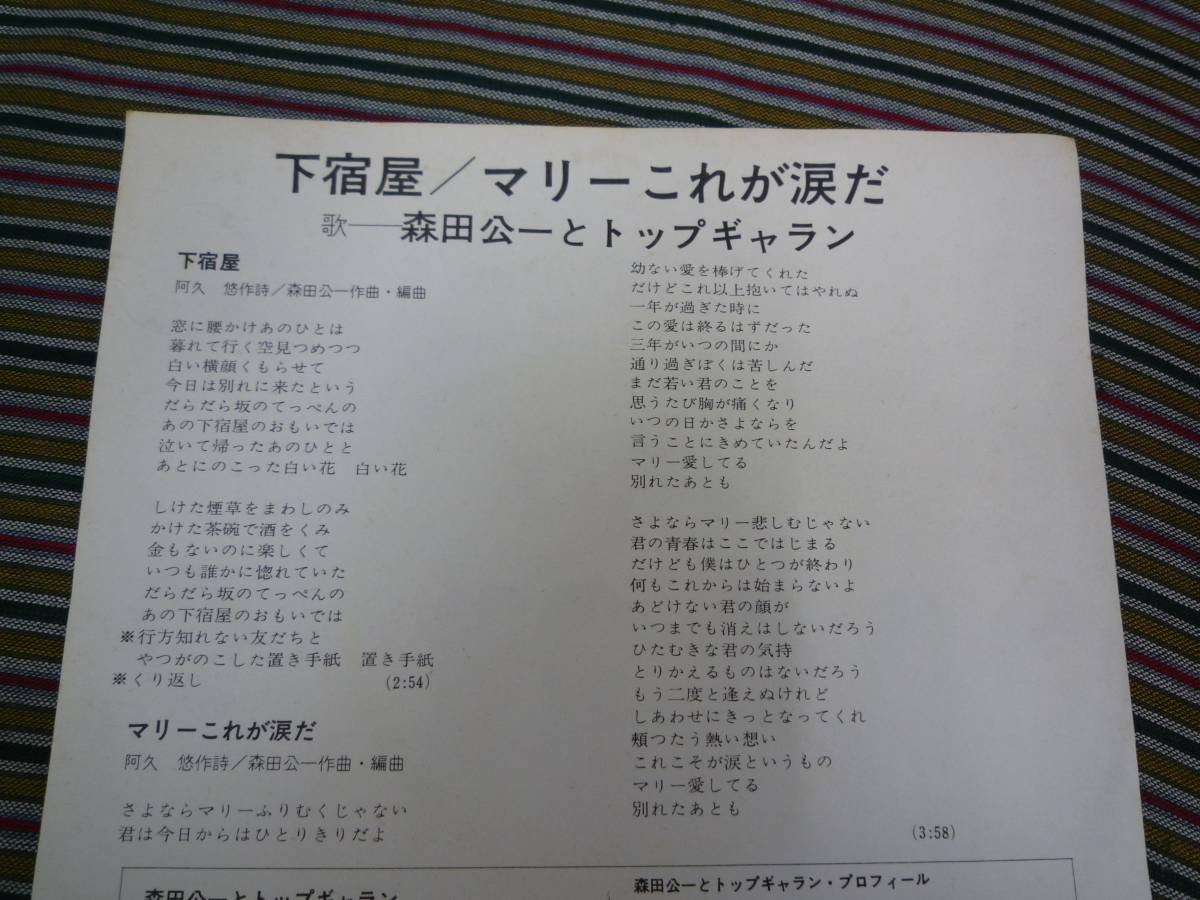 下宿屋／マリーこれが涙だ
歌──森田公一とトップギャラン
下宿屋
阿久 悠作詩／森田公一作曲・編曲
窓に腰かけあのひとは
暮れて行く空見つめつつ
白い横顔くもらせて
今日は別れに来たという
だらだら坂のてっぺんの
あの下宿屋のおもいでは
泣いて帰ったあのひとと
あとにのこった白い花 白い花
しけた煙草をまわしのみ
かけた茶碗で酒をくみ
金もないのに楽しくて
いつも誰かに惚れていた
だらだら坂のてっぺんの
あの下宿屋のおもいでは
※行方知れない友だちと
やつがのこした置き手紙 置き手紙
※くり返し (2:54)
マリーこれが涙だ
阿久 悠作詩／森田公一作曲・編曲
さよならマリーふりむくじゃない
君は今日からはひとりきりだよ
幼ない愛を棒げてくれた
だけどこれ以上抱いてはやれぬ
一年が過ぎた時に
この愛は終るはずだった
三年がいつの間にか
通り過ぎぼくは苦しんだ
まだ若い君のことを
思うたび胸が痛くなり
いつの日かさよならを
言うことにきめていたんだよ
マリー愛してる
別れたあとも
さよならマリー悲しむじゃない
君の青春はここではじまる
だけども僕はひとつが終わり
何もこれからは始まらないよ
あどけない君の顔が
いつまでも消えはしないだろう
ひたむきな君の気持
とりかえるものはないだろう
もう二度と逢えぬけれど
しあわせにきっとなってくれ
頬つたう熱い想い
これこそが涙というもの
マリー愛してる
別れたあとも
(3:58)
森田公一とトップギャラン
森田公一とトップギャラン・プロフィール